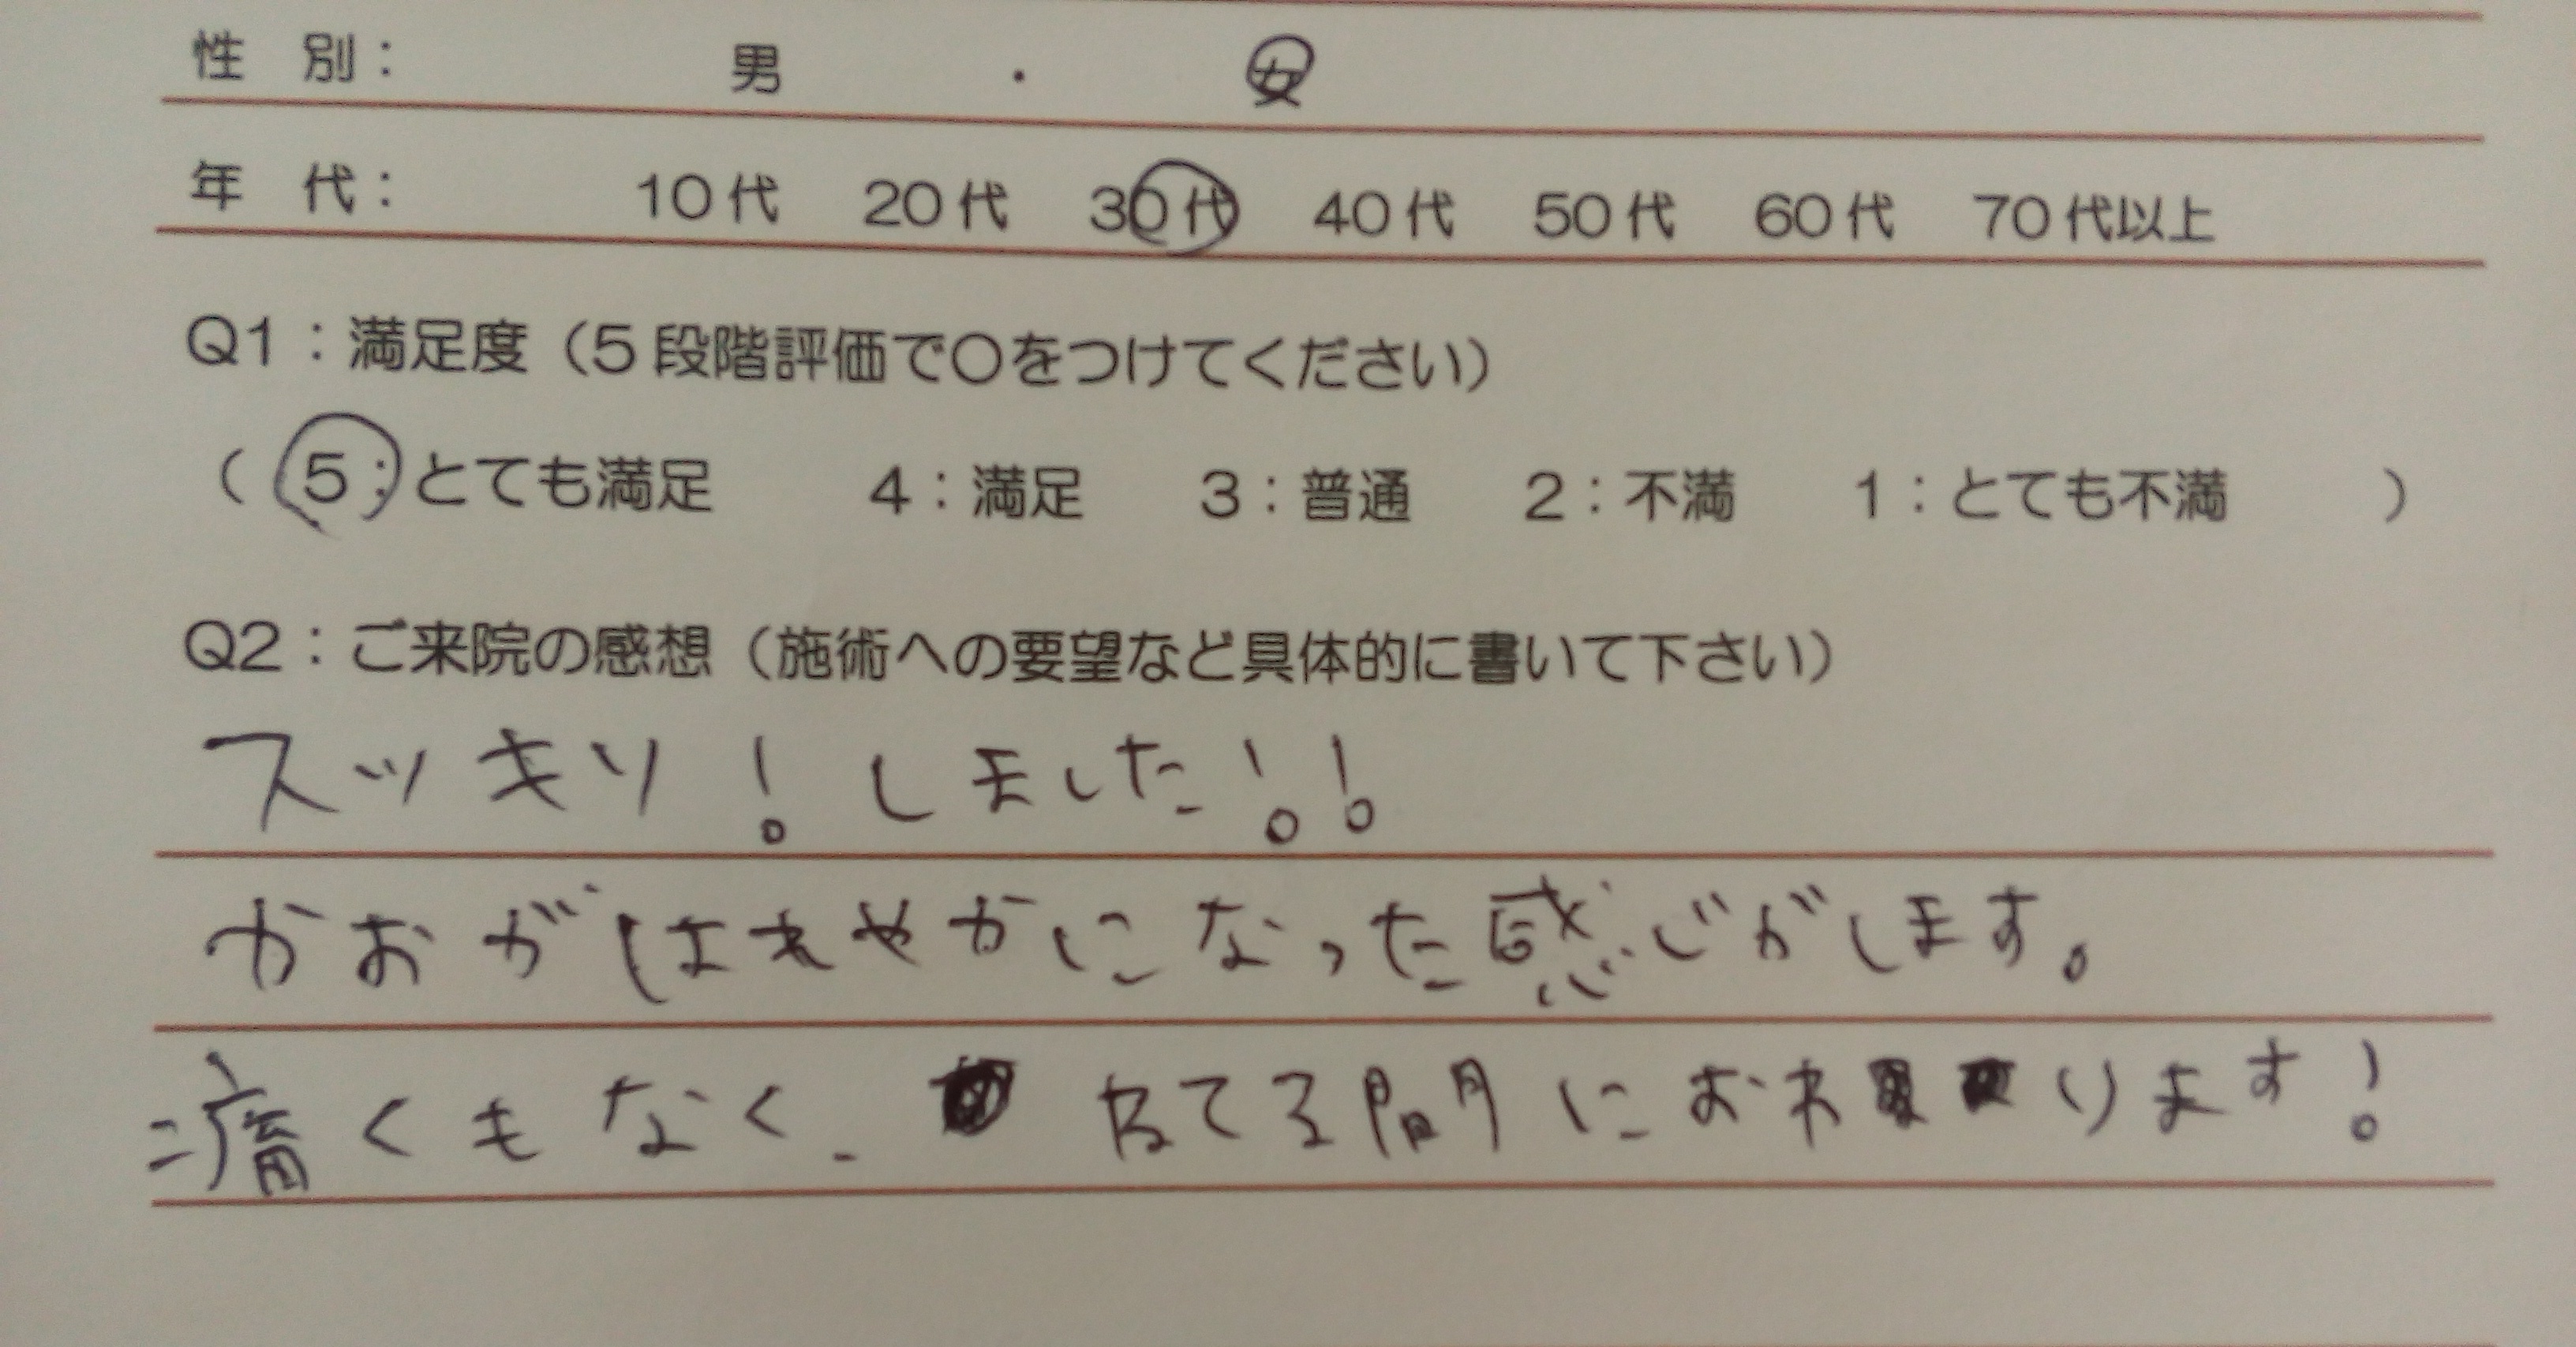 性 別： 男 ・ 女
年 代： 10代 20代 30代 40代 50代 60代 70代以上
Q1：満足度（5段階評価で〇をつけてください）
（ 5：とても満足 4：満足 3：普通 2：不満 1：とても不満 ）
Q2：ご来院の感想（施術への要望など具体的に書いて下さい）
スッキリ！しました！！
かおがはれやかになった感じがします。
痛くもなく、ねてる間におわります！